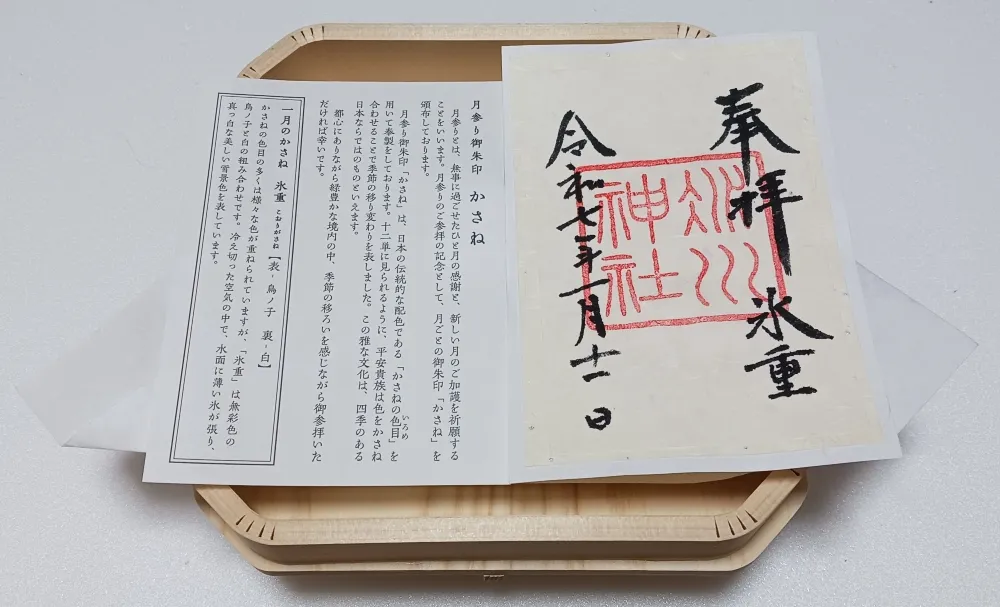 奉拝 氷重
氷川
神社
令和七年一月十一日
月参り御朱印 かさね
月参りとは、無事に過ごせたひと月の感謝と、新しい月のご加護を祈願する
ことをいいます。月参りのご参拝の記念として、月ごとの御朱印「かさね」を
頒布しております。
月参り御朱印「かさね」は、日本の伝統的な配色である「かさねの色目」を
いろめ
用いて奉製をしております。十二単に見られるように、平安貴族は色をかさね
合わせることで季節の移り変わりを表しました。この雅な文化は、四季のある
日本ならではのものといえます。
都心にありながら緑豊かな境内の中、季節の移ろいを感じながら御参拝いた
だければ幸いです。
一月のかさね 氷重 こおりがさね【表-鳥ノ子 裏-白】
かさねの色目の多くは様々な色が重ねられていますが、「氷重」は無彩色の
鳥ノ子と白の組み合わせです。冷え切った空気の中で、水面に薄い氷が張り、
真っ白な美しい雪景色を表しています。